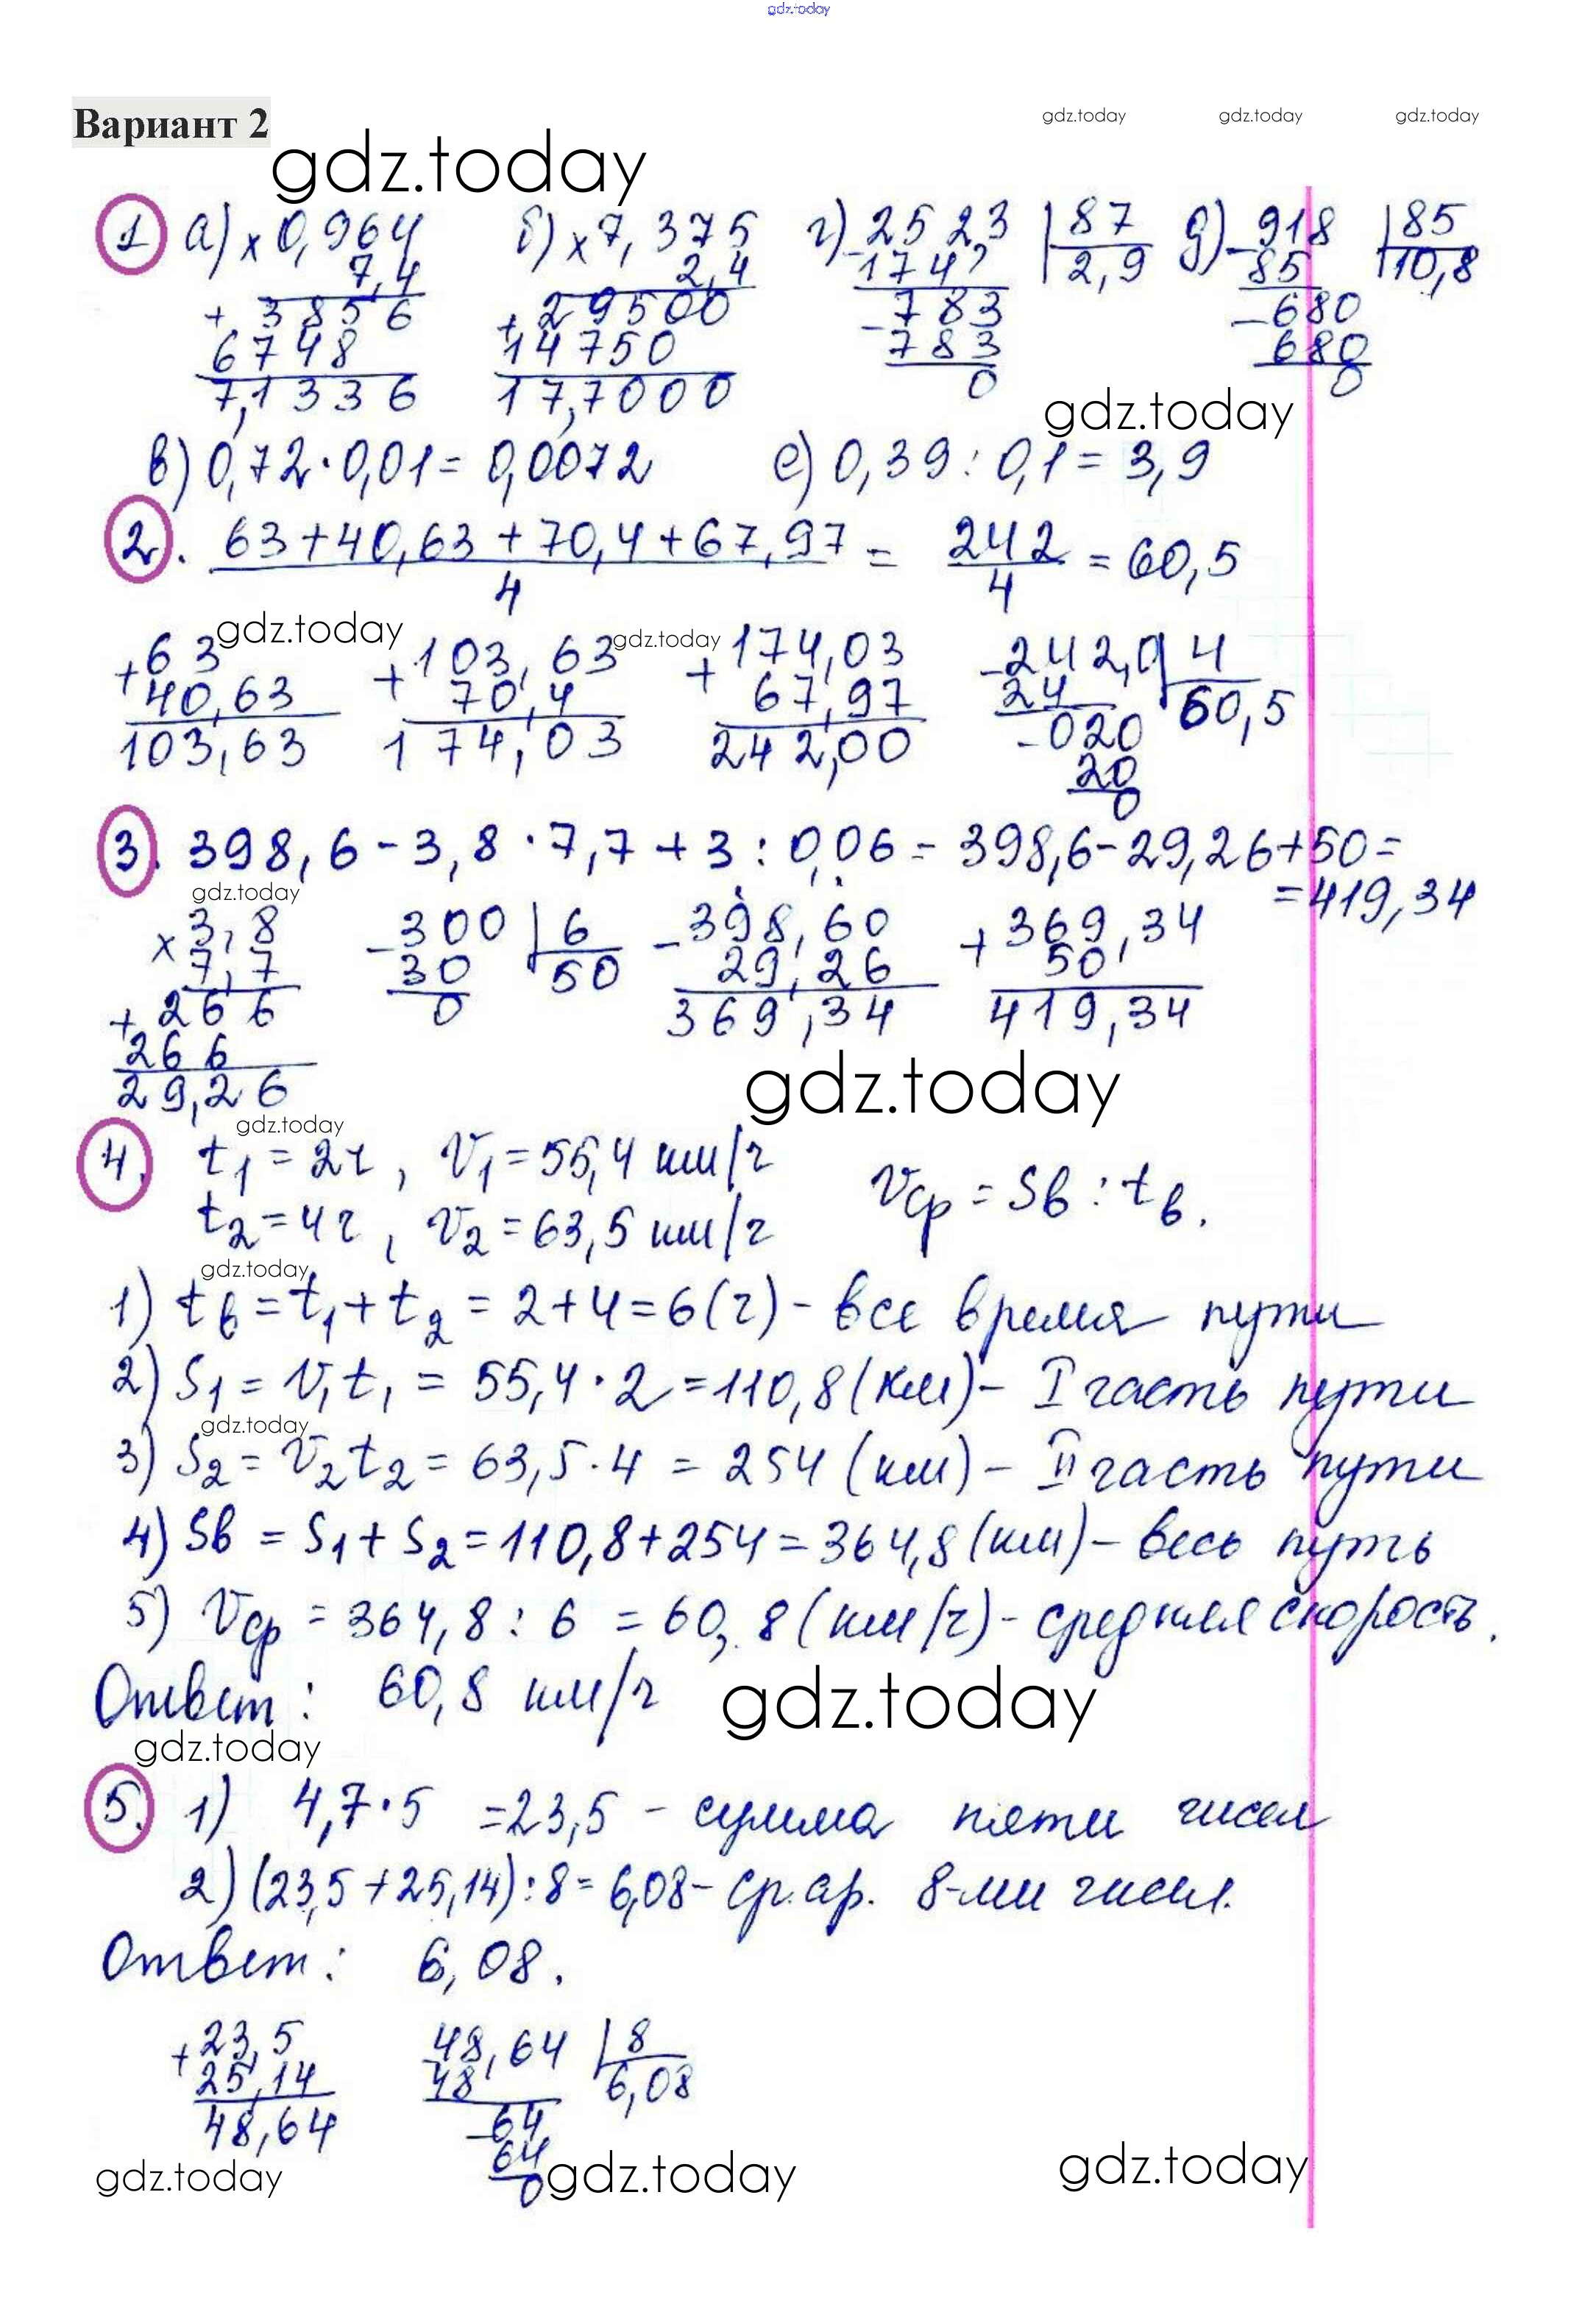 gdz.today
Вариант 2
gdz.today gdz.today gdz.today
gdz.today
1 а) × 0,964 б) × 7,375 г) - 2523 | 87 д) - 918 | 85
7,4 2,4 174 2,9 85 10,8
+ 3856 + 29500 - 783 - 680
6748 14750 783 680
7,1336 17,7000 0 0
gdz.today
в) 0,72 · 0,01 = 0,0072 е) 0,39 : 0,1 = 3,9
2. 63 + 40,63 + 70,4 + 67,97 / 4 = 242 / 4 = 60,5
gdz.today gdz.today
+ 63 + 103,63 + 174,03 - 242,0 | 4
40,63 70,4 67,97 24 60,5
103,63 174,03 242,00 - 020
20
0
3. 398,6 - 3,8 · 7,7 + 3 : 0,06 = 398,6 - 29,26 + 50 =
= 419,34
gdz.today
× 3,8 - 300 | 6 - 398,60 + 369,34
7,7 30 50 29,26 50
+ 266 0 369,34 419,34
266
29,26
gdz.today
gdz.today
4. t1 = 2ч, V1 = 55,4 км/ч
Vср = Sв : tв.
t2 = 4ч, V2 = 63,5 км/ч
gdz.today
1) tв = t1 + t2 = 2 + 4 = 6 (ч) - все время пути
2) S1 = V1t1 = 55,4 · 2 = 110,8 (км) - I часть пути
gdz.today
3) S2 = V2t2 = 63,5 · 4 = 254 (км) - II часть пути
4) Sв = S1 + S2 = 110,8 + 254 = 364,8 (км) - весь путь
5) Vср = 364,8 : 6 = 60,8 (км/ч) - средняя скорость.
Ответ: 60,8 км/ч
gdz.today
gdz.today
5. 1) 4,7 · 5 = 23,5 - сумма пяти чисел
2) (23,5 + 25,14) : 8 = 6,08 - ср. ар. 8-ми чисел.
Ответ: 6,08.
+ 23,5 48,64 | 8
25,14 48 6,08
48,64 - 64
64
0
gdz.today gdz.today gdz.today